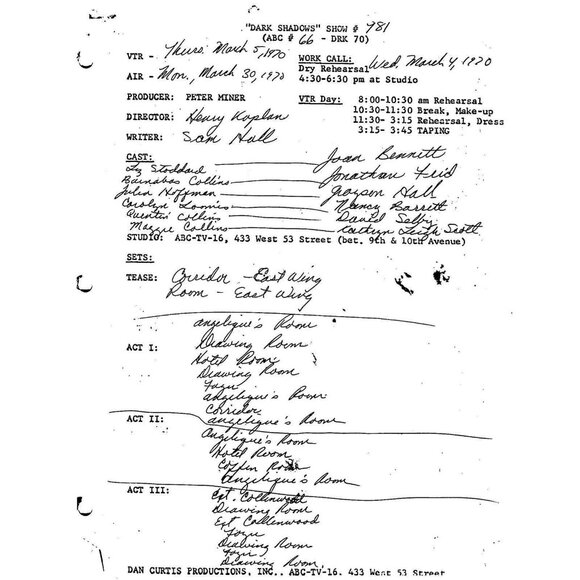 "DARK SHADOWS" SHOW # 981
(ABC # 66 - DRK 70)
VTR - Thurs. March 5, 1970
WORK CALL: Wed, March 4, 1970
Dry Rehearsal
AIR - Mon, March 30, 1970
4:30-6:30 pm at Studio
PRODUCER: PETER MINER
VTR Day: 8:00-10:30 am Rehearsal
10:30-11:30 Break, Make-up
DIRECTOR: Henry Kaplan
11:30- 3:15 Rehearsal, Dress
3:15- 3:45 TAPING
WRITER: Sam Hall
CAST:
Liz Stoddard Joan Bennett
Barnabas Collins Jonathan Frid
Julia Hoffman Grayson Hall
Carolyn Loomis Nancy Barrett
Quentin Collins David Selby
Maggie Collins Kathryn Leigh Scott
STUDIO: ABC-TV-16, 433 West 53 Street (bet. 9th & 10th Avenue)
SETS:
TEASE: Corridor - East Wing
Room - East Wing
Angelique's Room
ACT I: Drawing Room
Hotel Room
Drawing Room
Foyer
Angelique's Room
Corridor
ACT II: Angelique's Room
Angelique's Room
Hotel Room
Coffin Room
Angelique's Room
ACT III: Ext. Collinwood
Drawing Room
Ext Collinwood
Foyer
Drawing Room
Foyer
Drawing Room
DAN CURTIS PRODUCTIONS, INC., ABC-TV-16, 433 West 53 Street